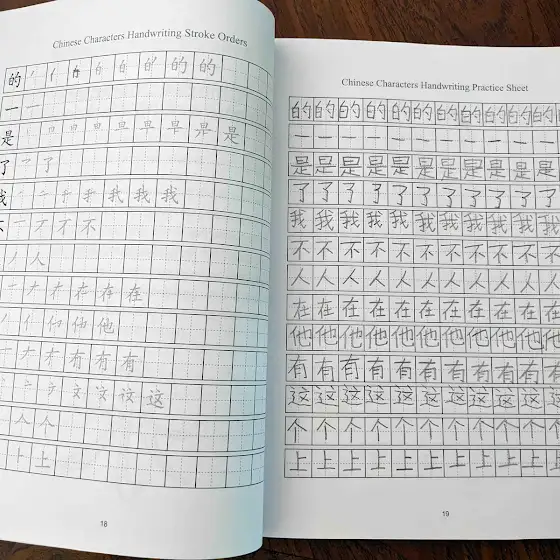 Chinese Characters Handwriting Stroke Orders
的 白 的 的
一 一
是 日 旦 早 是
了 乛 了
我 我 我
不 一 丆 不 不
丿 人
一 ナ 在 在
丿 亻 他
一 ナ 有 有
丶 文 这
人 个
上
18
Chinese Characters Handwriting Practice Sheet
的 的 的 的 的 的 的 的 的 的 的
一 一 一 一 一 一 一 一 一 一 一
是 是 是 是 是 是 是 是 是 是 是
了 了 了 了 了 了 了 了 了 了 了
我 我 我 我 我 我 我 我 我 我 我
不 不 不 不 不 不 不 不 不 不 不
人 人 人 人 人 人 人 人 人 人 人
在 在 在 在 在 在 在 在 在 在 在
他 他 他 他 他 他 他 他 他 他 他
有 有 有 有 有 有 有 有 有 有 有
这 这 这 这 这 这 这 这 这 这 这
个 个 个 个 个 个 个 个 个 个 个
上 上 上 上 上 上 上 上 上 上 上
19